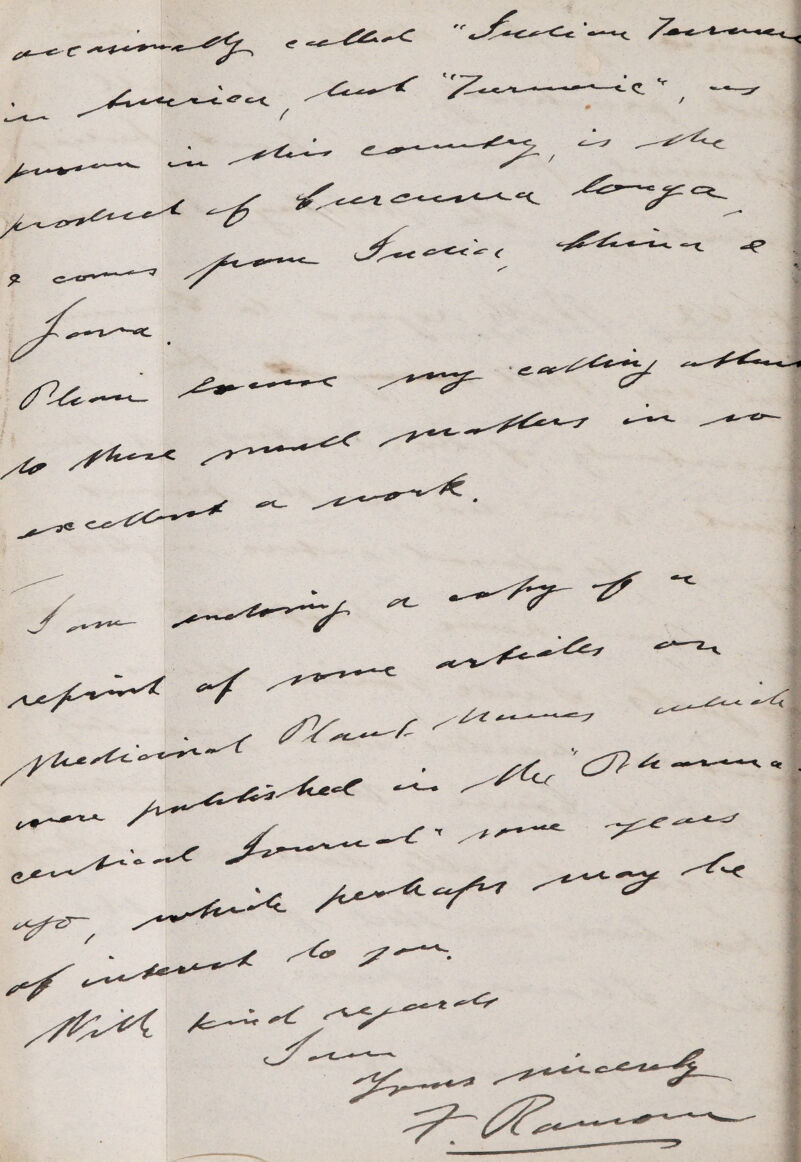 occasionally called "Indian Turmeric
in America, but "Turmeric", as
known in this country, is the
product of Curcuma longa,
& comes from India, China &
Java.
Please excuse my calling atten
to these small matters in so
excellent a work.
I am enclosing a copy of a
reprint of some articles on
Medicinal Plant Names which
were published in the "Pharma-
ceutical Journal" some years
ago, which perhaps may be
of interest to you.
With kind regards
I am
Yours sincerely
F. Ransom